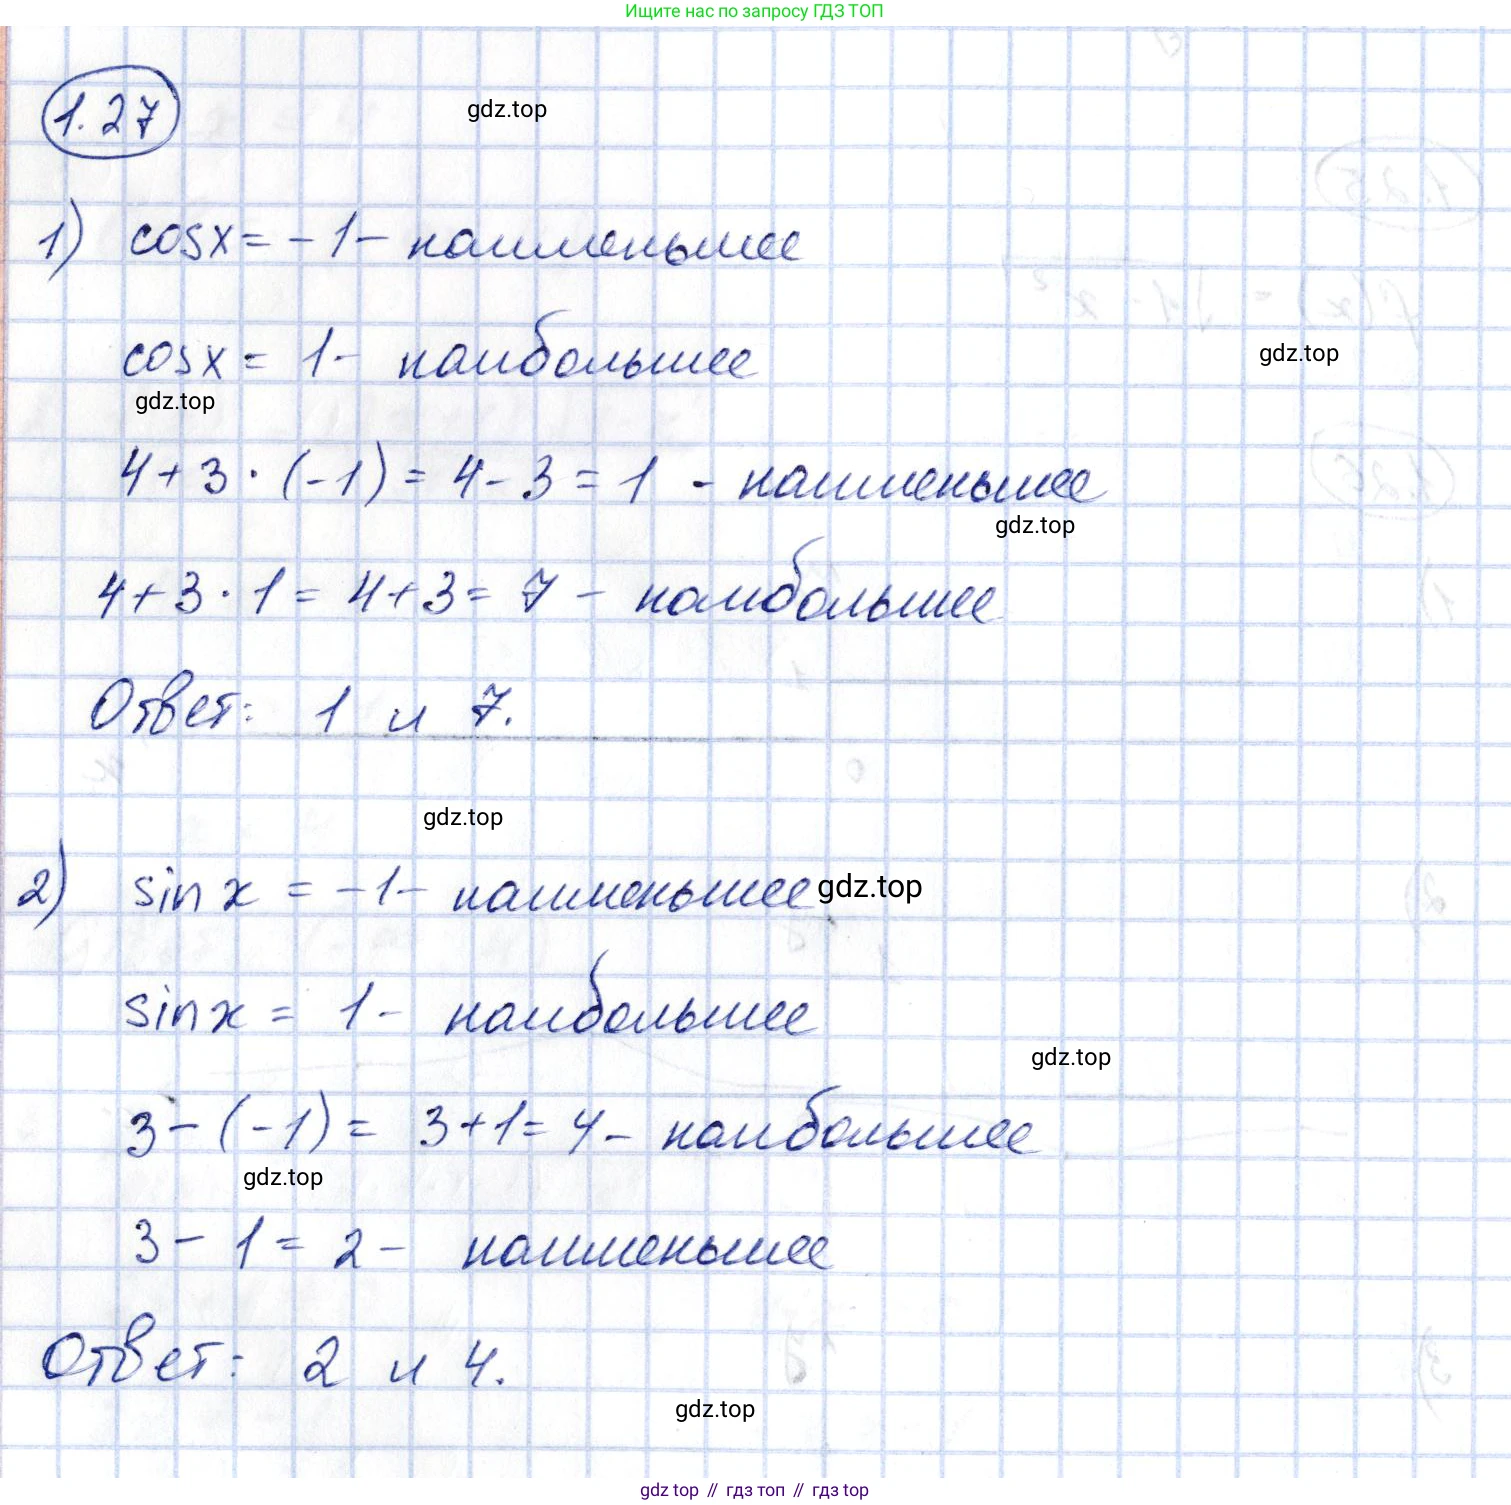 Ищите нас по запросу ГДЗ ТОП
1.27
gdz.top
1) cosx = -1 - наименьшее
cosx = 1 - наибольшее
gdz.top
gdz.top
4 + 3 · (-1) = 4 - 3 = 1 - наименьшее
gdz.top
4 + 3 · 1 = 4 + 3 = 7 - наибольшее
Ответ: 1 и 7.
gdz.top
2) sin x = -1 - наименьшее gdz.top
sin x = 1 - наибольшее
gdz.top
3 - (-1) = 3 + 1 = 4 - наибольшее
gdz.top
3 - 1 = 2 - наименьшее
Ответ: 2 и 4.
gdz.top
gdz top // гдз топ // гдз top